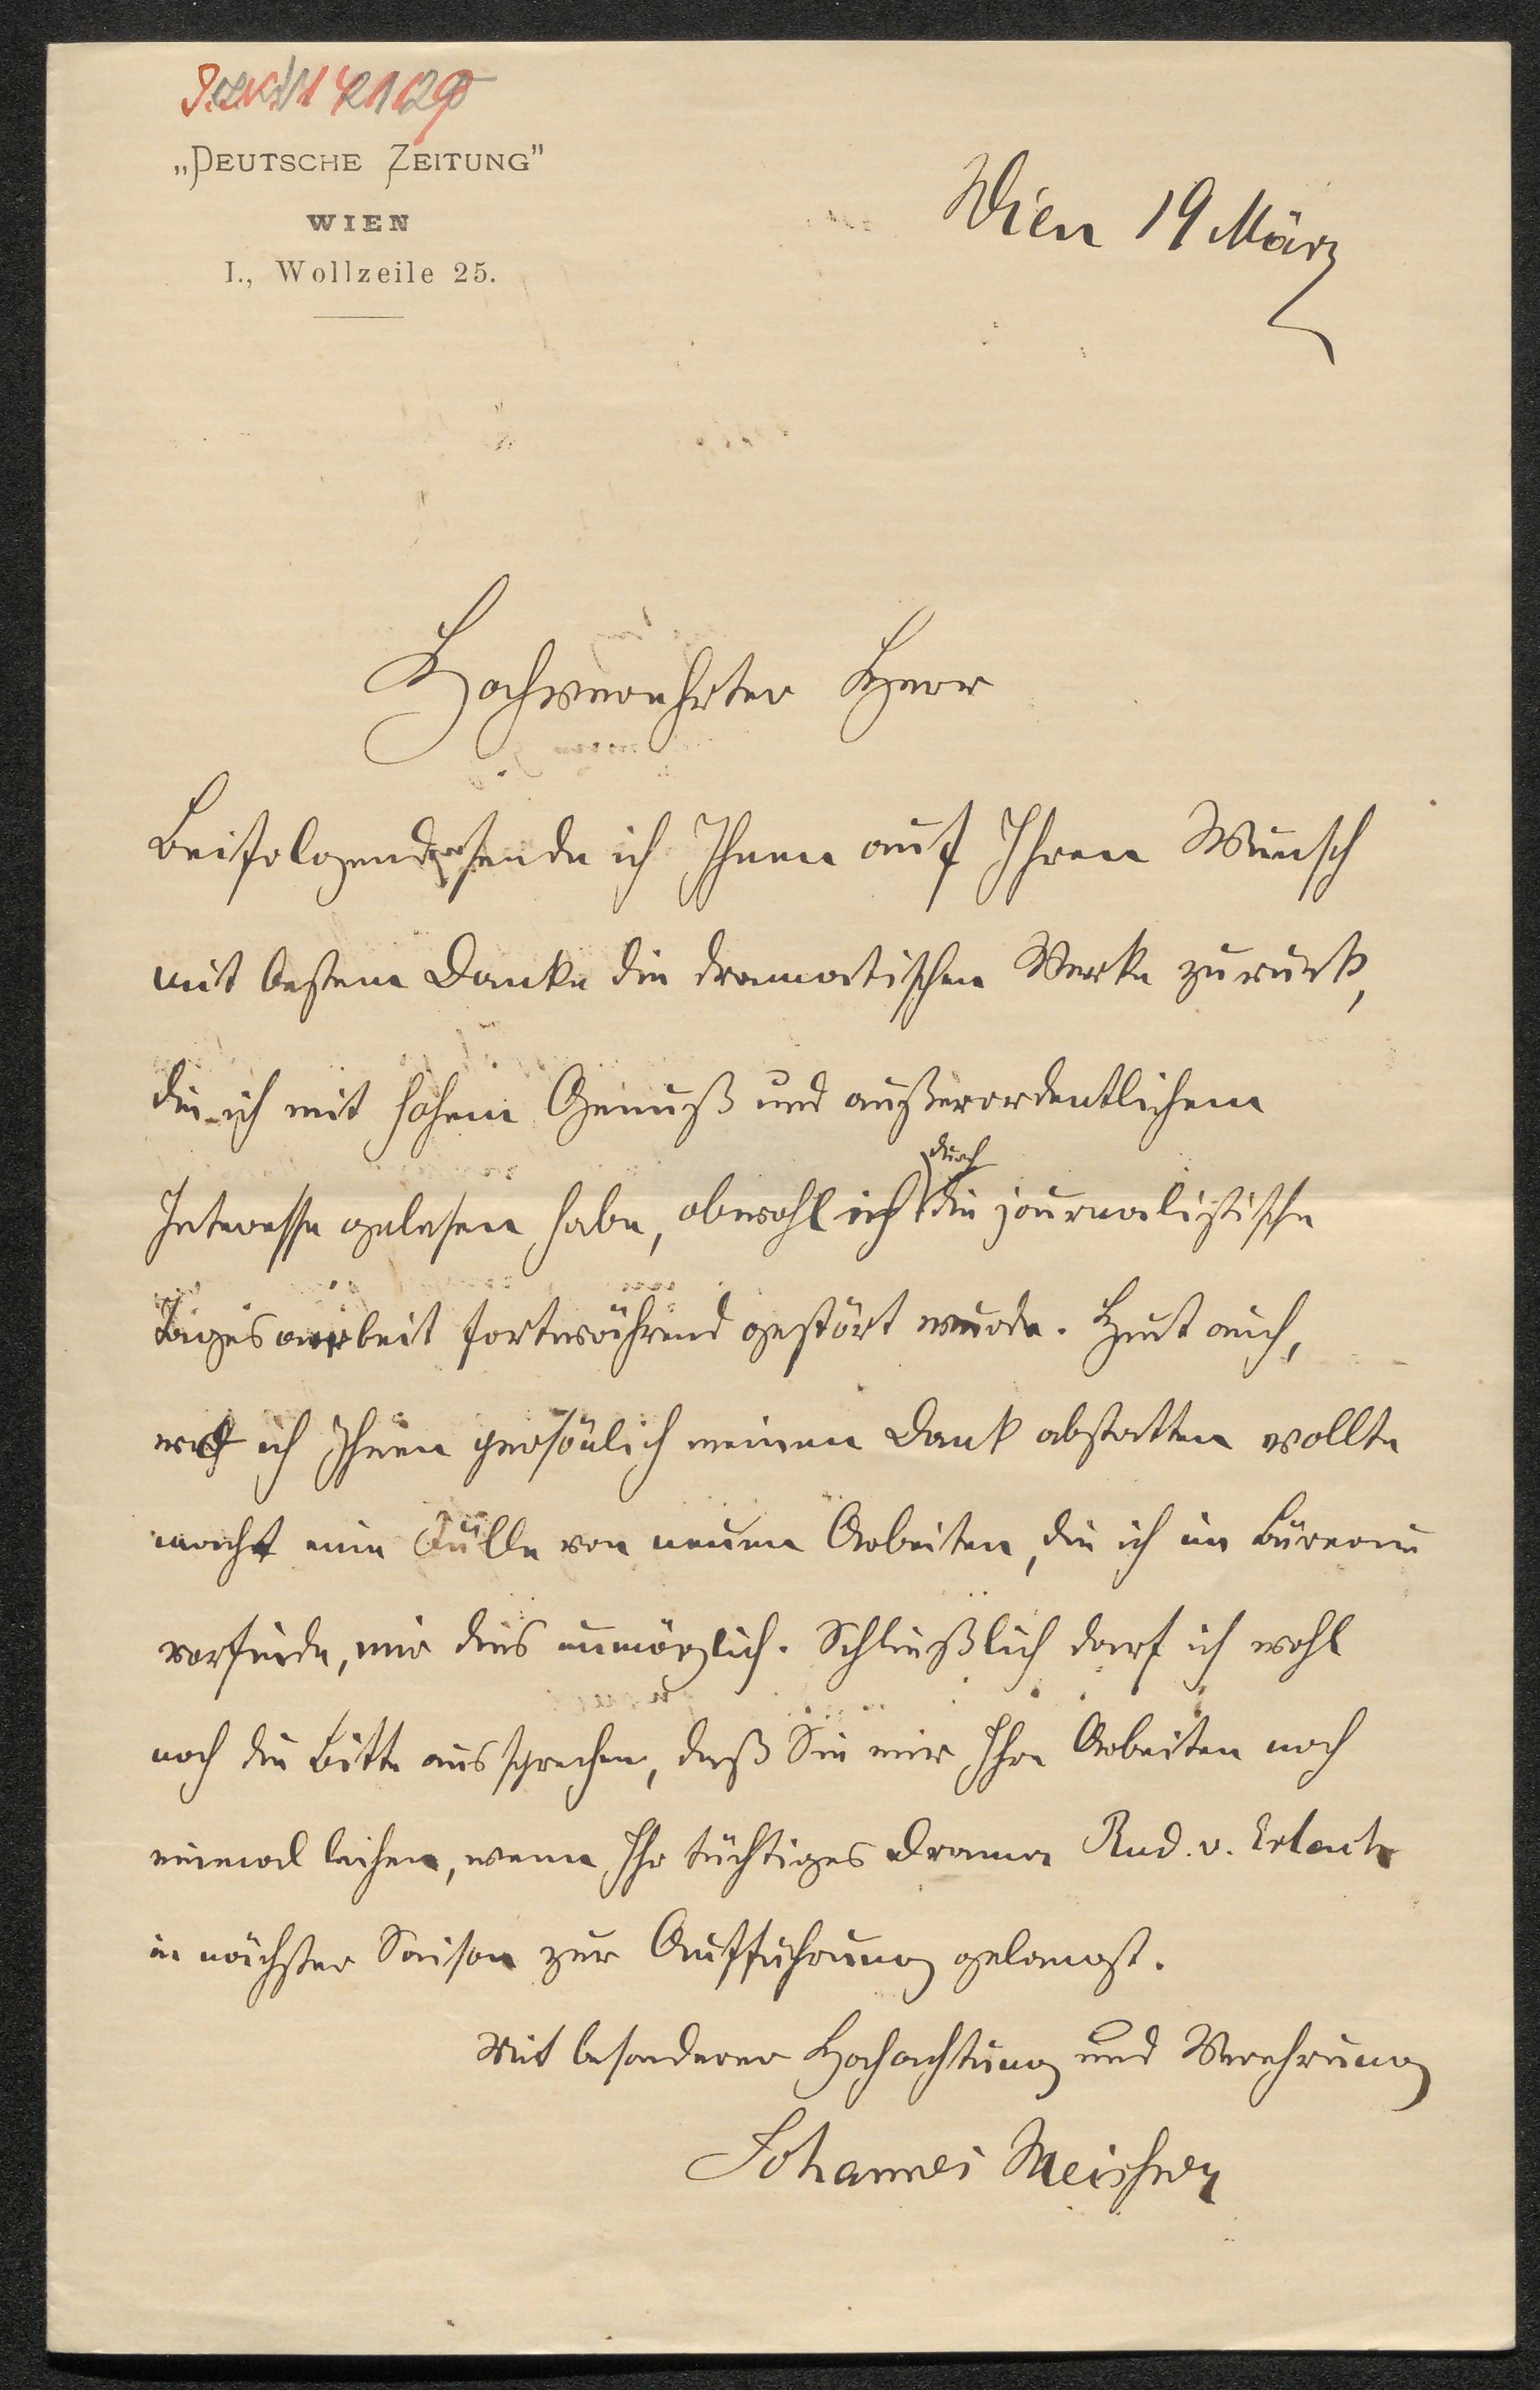 „DEUTSCHE ZEITUNG"
WIEN
I., Wollzeile 25.
Wien 19 März
Hochverehrter Herr
Beifolgend sende ich Ihnen auf Ihren Wunsch
mit bestem Danke die dramatischen Werke zurück,
die ich mit hohem Genuß und außerordentlichem
Interesse gelesen habe, obwohl ich durch die journalistische
Tagesarbeit fortwährend gestört wurde. Heut auch,
wo ich Ihnen persönlich meinen Dank abstatten wollte
macht eine Fülle von neuen Arbeiten, die ich im Büreau
vorfinde, mir dies unmöglich. Schließlich darf ich wohl
noch die Bitte aussprechen, daß Sie mir Ihre Arbeiten noch
einmal leihen, wenn Ihr tüchtiges Drama Rud. v. Erlach
in nächster Saison zur Aufführung gelangt.
Mit besonderer Hochachtung und Verehrung
Johannes Meissner